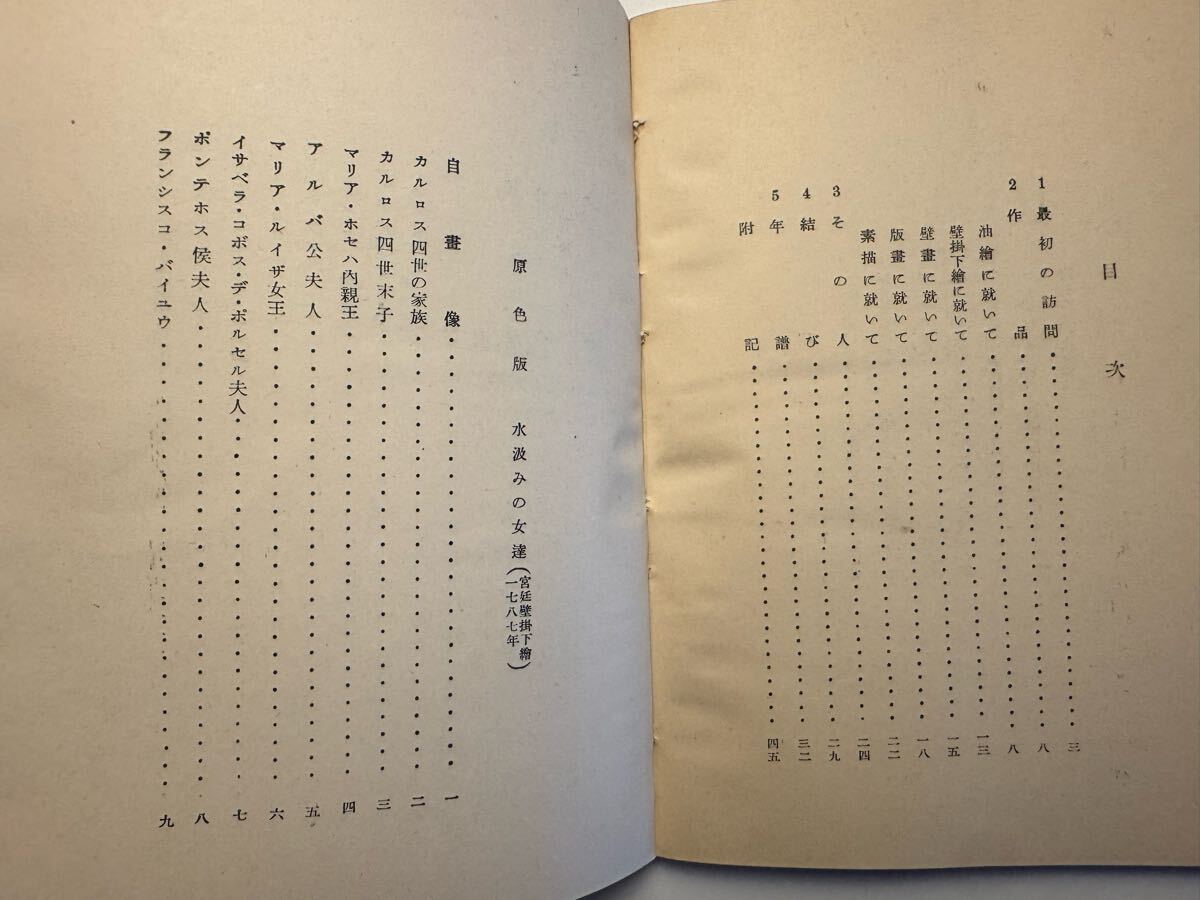 目次
1 最初の訪問……三
2 作品……八
油繪に就いて……八
壁掛下繪に就いて……一三
壁畫に就いて……一五
版畫に就いて……一八
素描に就いて……二二
3 その人……二四
4 結び……二九
5 年譜……三二
附記……四五
原色版 水汲みの女達(宮廷壁掛下繪
一七八七年)
自畫像……一
カルロス四世の家族……二
カルロス四世末子……三
マリア・ホセハ內親王……四
アルバ公夫人……五
マリア・ルイザ女王……六
イサベラ・コボス・デ・ポルセル夫人……七
ポンテホス侯夫人……八
フランシスコ・バイユウ……九